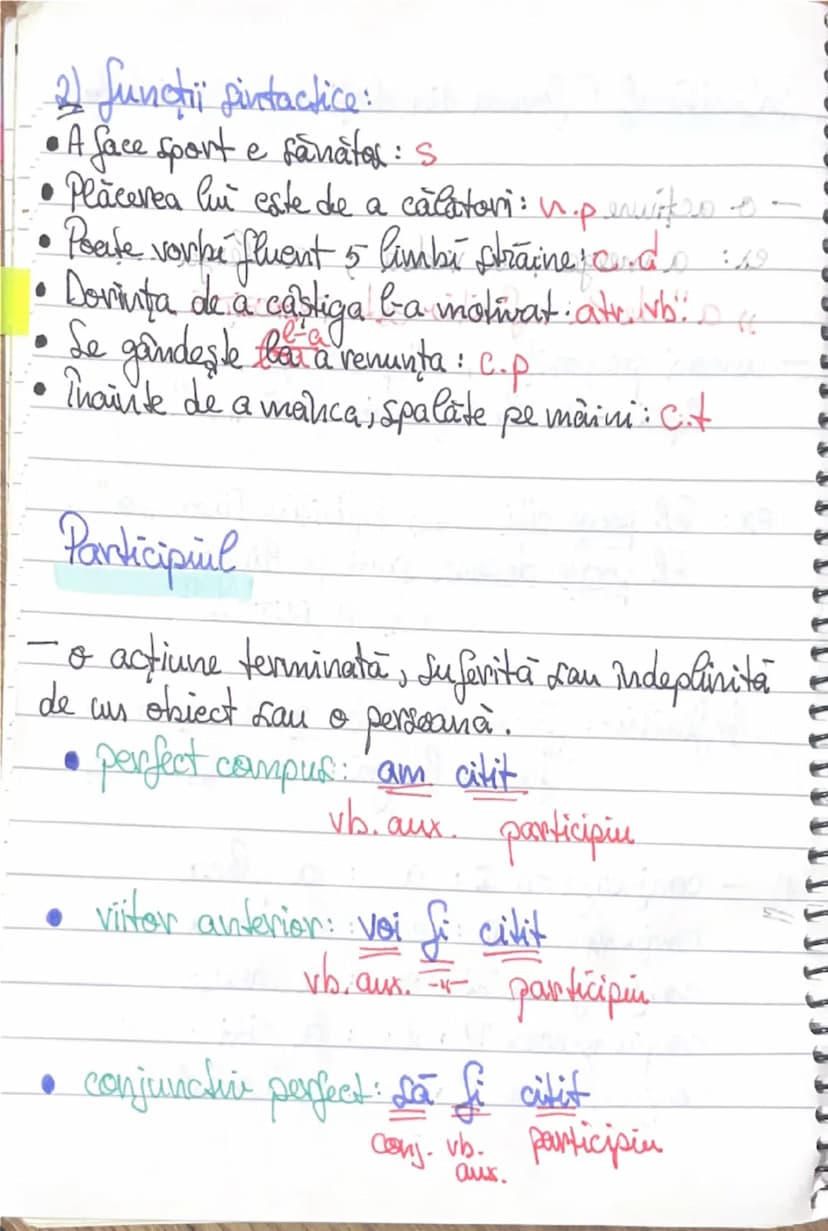 2) Funcții sintactice:
• A face sport e sănătos: s
• Plăcerea lui este de a călători: n.p
• Poate vorbi fluent 5 limbi străine: c.d
• Dorința de a câștiga l-a motivat: atr. vb.
• Se gândește l-a a renunța: c.p
• Înainte de a mânca, spalăte pe mâini: c.t
Participiul
- o acțiune terminată, suferită sau îndeplinită
de un obiect sau o persoană.
• perfect compus: am citit
vb. aux. participiu
• viitor anterior: voi fi citit
vb. aux. -//- participiu
• conjunctiv perfect: să fi citit
conj. vb. participiu
aux.